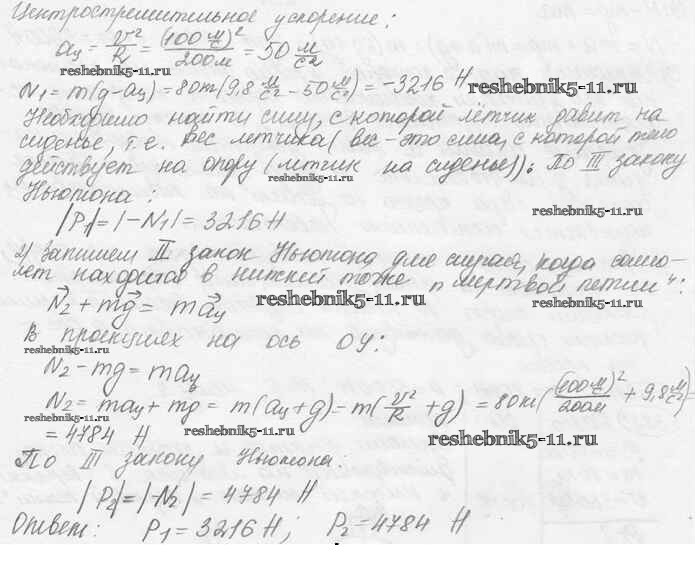 Центростремительное ускорение:
aц = v²/R = (100 м/с)²/200м = 50 м/с²
reshebnik5-11.ru
N₁ = m(g - aц) = 80кг(9,8 м/с² - 50 м/с²) = -3216 Н
reshebnik5-11.ru
Необходимо найти силу, с которой лётчик давит на
сиденье, т.е. вес летчика (вес - это сила, с которой тело
действует на опору (летчик на сиденье)). По III закону
reshebnik5-11.ru
Ньютона:
reshebnik5-11.ru
|P₁| = |-N₁| = 3216 Н
2) Запишем II закон Ньютона для случая, когда само-
лет находится в нижней точке "мертвой петли":
N₂ + mg = maц
reshebnik5-11.ru
reshebnik5-11.ru
В проекциях на ось OY:
reshebnik5-11.ru
N₂ - mg = maц
N₂ = maц + mg = m(aц + g) = m(v²/R + g) = 80кг((100 м/с)²/200м + 9,8 м/с²) =
reshebnik5-11.ru
= 4784 Н
reshebnik5-11.ru
reshebnik5-11.ru
По III закону Ньютона:
|P₂| = |-N₂| = 4784 Н
Ответ: P₁ = 3216 Н; P₂ = 4784 Н